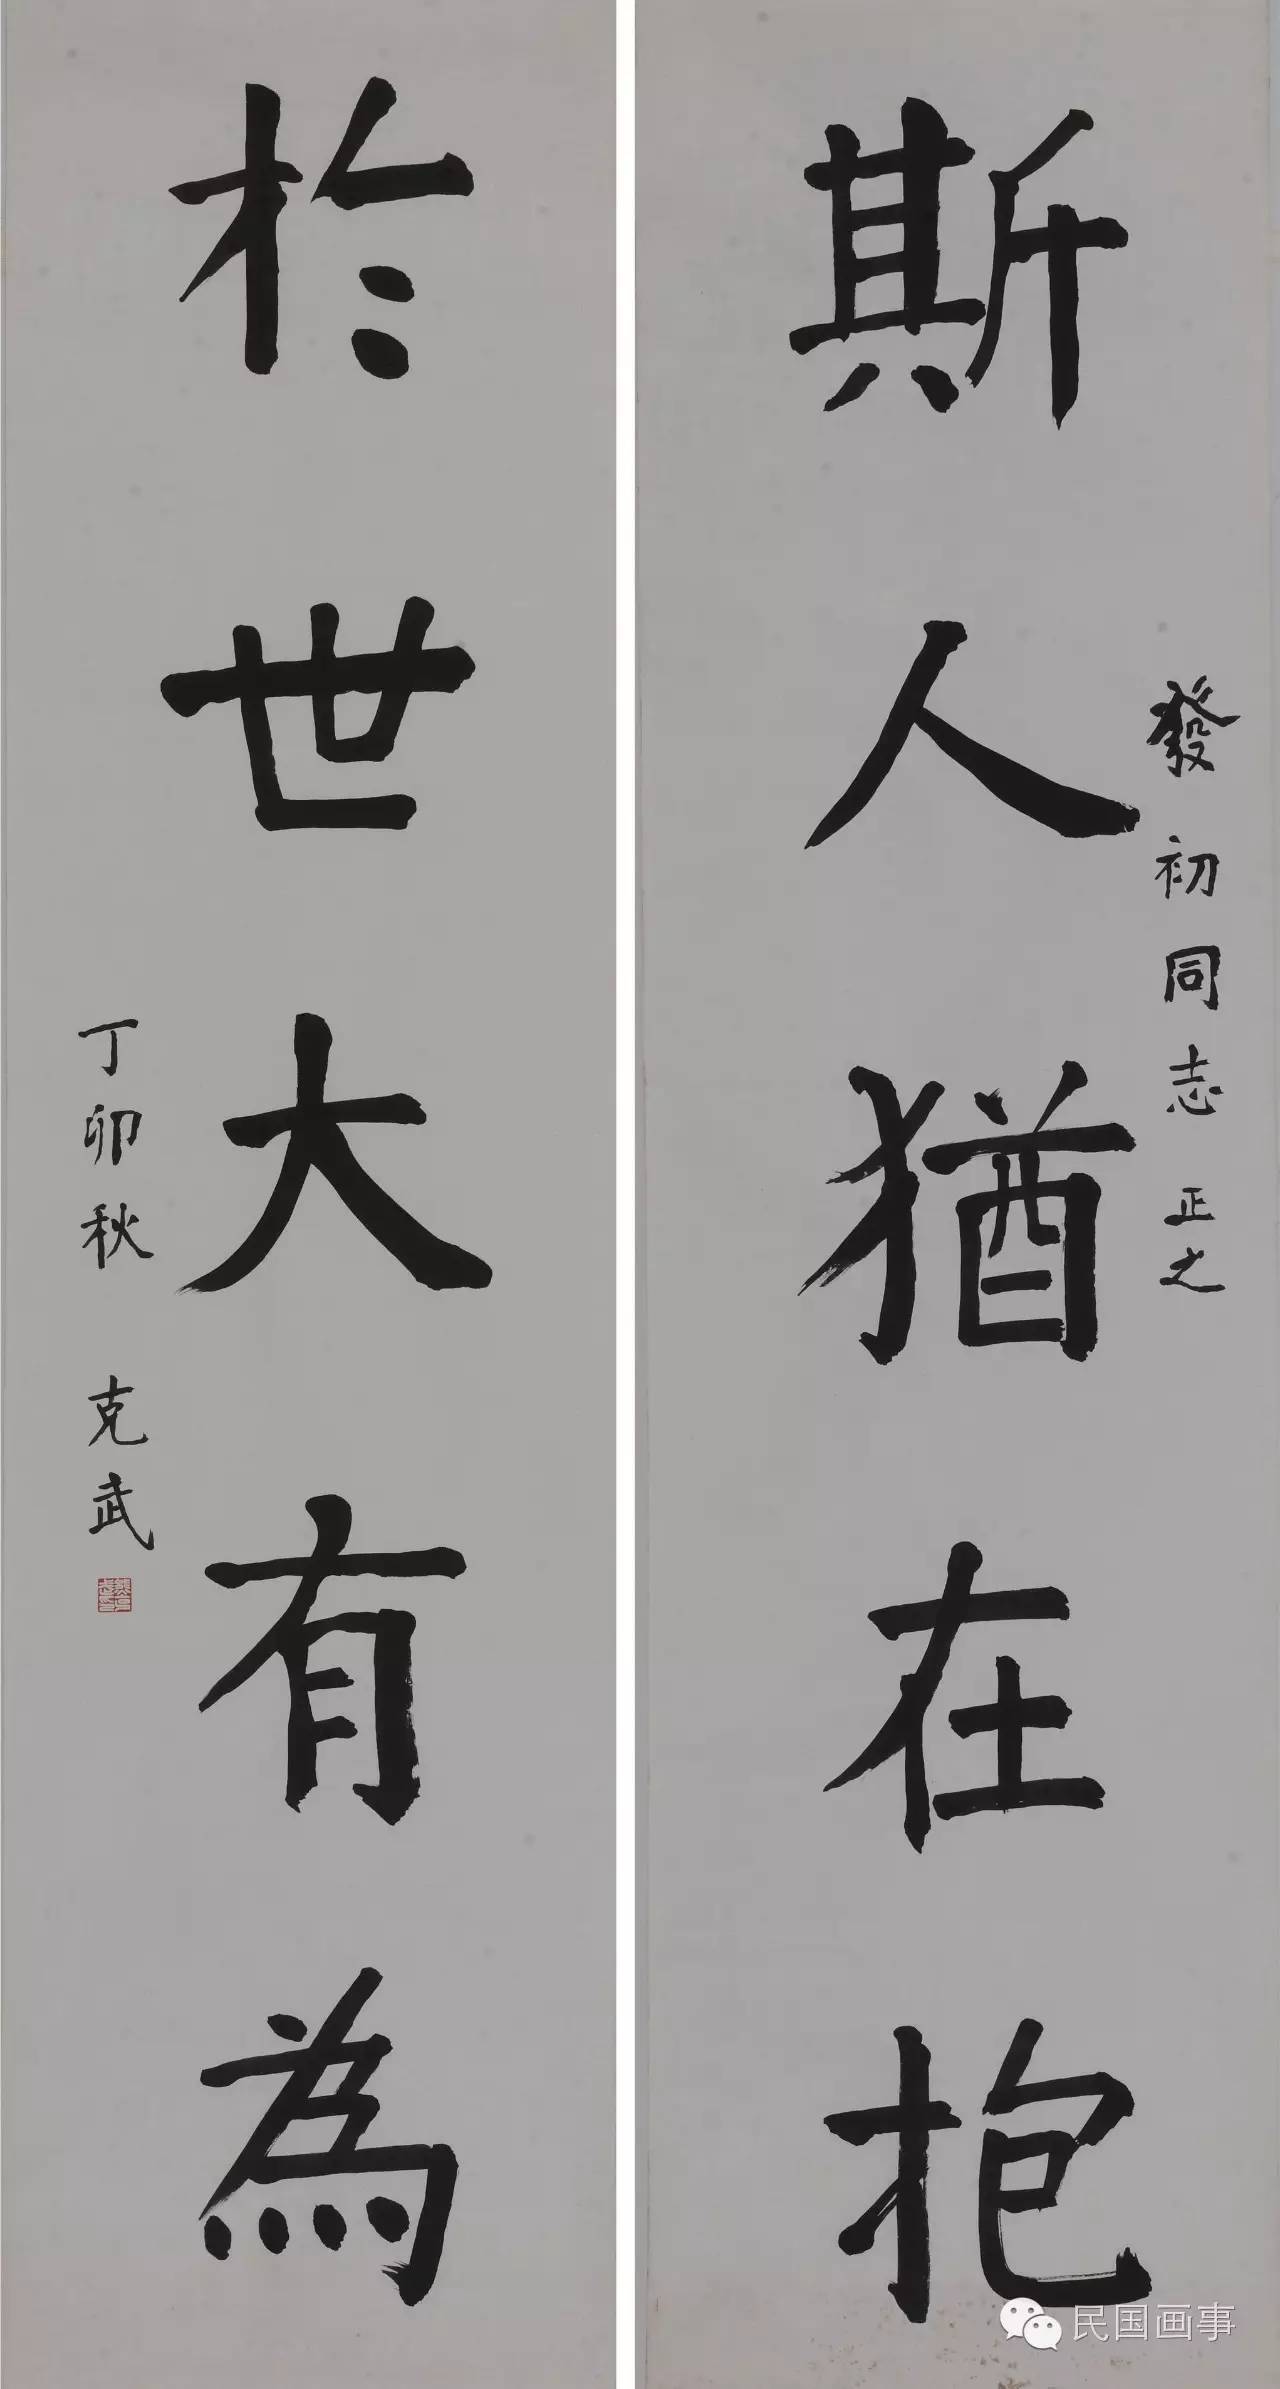 發初同志 正之
斯人猶在抱
於世大有為
丁卯秋 克武
民国画事